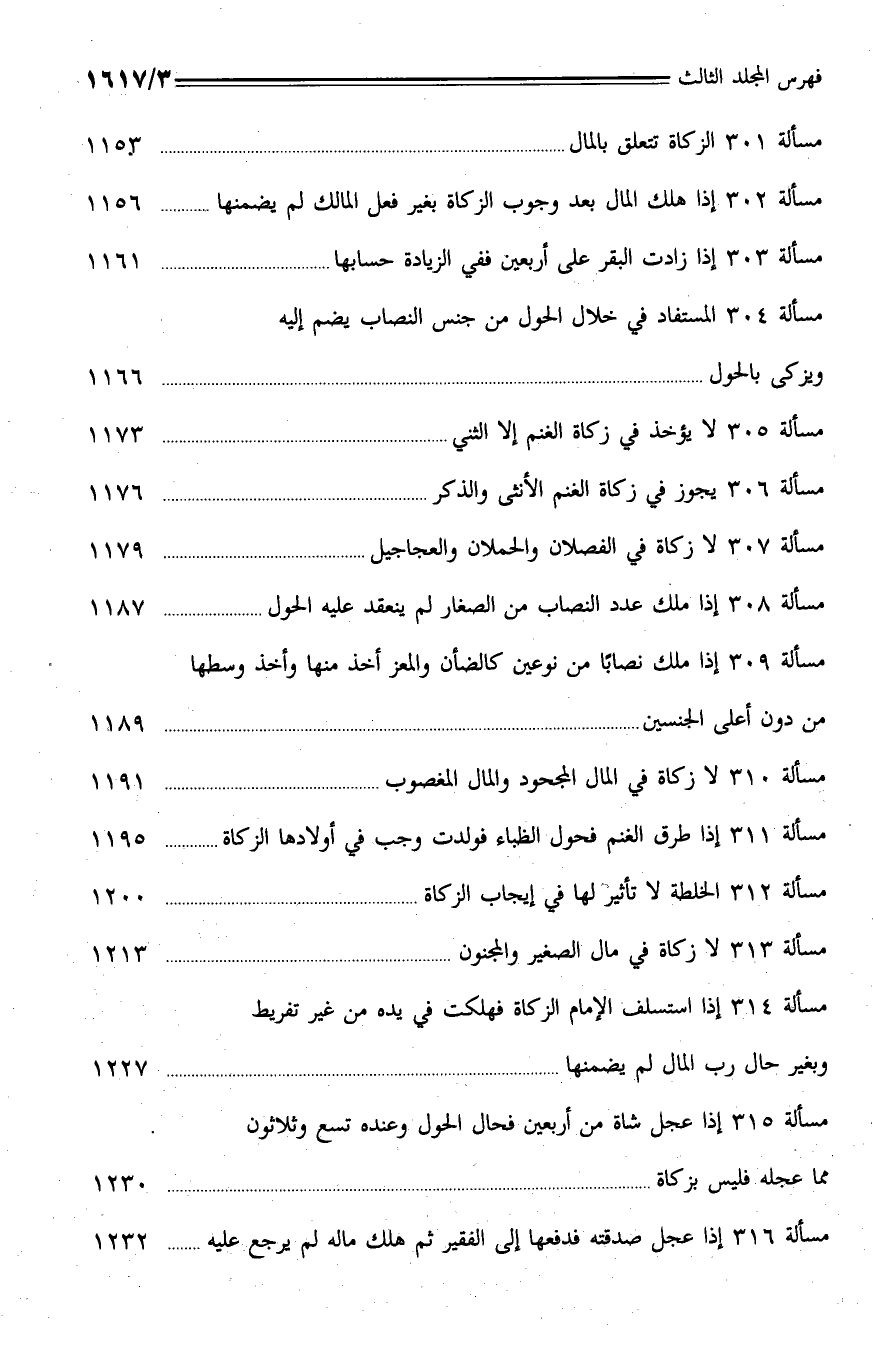 فهرس المجلد الثالث ١٦١٧/٣
مسألة ٣٠١ الزكاة تتعلق بالمال ١١٥٣
مسألة ٣٠٢ إذا هلك المال بعد وجوب الزكاة بغير فعل المالك لم يضمنها ١١٥٦
مسألة ٣٠٣ إذا زادت البقر على أربعين ففي الزيادة حسابها ١١٦١
مسألة ٣٠٤ المستفاد في خلال الحول من جنس النصاب يضم إليه
ويزكى بالحول ١١٦٦
مسألة ٣٠٥ لا يؤخذ في زكاة الغنم إلا الثني ١١٧٣
مسألة ٣٠٦ يجوز في زكاة الغنم الأنثى والذكر ١١٧٦
مسألة ٣٠٧ لا زكاة في الفصلان والحملان والعجاجيل ١١٧٩
مسألة ٣٠٨ إذا ملك عدد النصاب من الصغار لم ينعقد عليه الحول ١١٨٧
مسألة ٣٠٩ إذا ملك نصابًا من نوعين كالضأن والمعز أخذ منها وأخذ وسطها
من دون أعلى الجنسين ١١٨٩
مسألة ٣١٠ لا زكاة في المال المجحود والمال المغصوب ١١٩١
مسألة ٣١١ إذا طرق الغنم فحول الظباء فولدت وجب في أولادها الزكاة ١١٩٥
مسألة ٣١٢ الخلطة لا تأثير لها في إيجاب الزكاة ١٢٠٠
مسألة ٣١٣ لا زكاة في مال الصغير والمجنون ١٢١٣
مسألة ٣١٤ إذا استسلف الإمام الزكاة فهلكت في يده من غير تفريط
وبغير حال رب المال لم يضمنها ١٢٢٧
مسألة ٣١٥ إذا عجل شاة من أربعين فحال الحول وعنده تسع وثلاثون
مما عجله فليس بزكاة ١٢٣٠
مسألة ٣١٦ إذا عجل صدقته فدفعها إلى الفقير ثم هلك ماله لم يرجع عليه ١٢٣٢